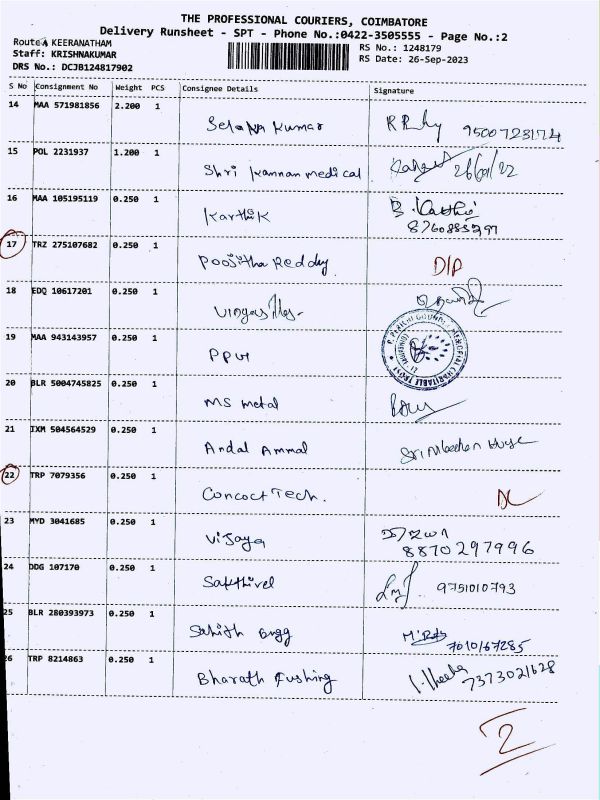 THE PROFESSIONAL COURIERS, COIMBATORE
Delivery Runsheet - SPT - Phone No.:0422-3505555 - Page No.:2
Route: KEERANATHAM
RS No.: 1248179
Staff: KRISHNAKUMAR
RS Date: 26-Sep-2023
DRS No.: DCJB124817902
S No Consignment No Weight PCS Consignee Details Signature
14 MAA 571981856 2.200 1
Kumar
15 POL 2231937 1.200 1
Shri Kannan medical
16 MAA 105195119 0.250 1
Karthik
17 TRZ 275107682 0.250 1
Poojitha Reddy D/P
18 EDQ 10617201 0.250 1
19 MAA 943143957 0.250 1
20 BLR 5004745825 0.250 1
MS metal
21 IXM 504564529 0.250 1
Andal Ammal
22 TRP 7079356 0.250 1
Concoct Tech. DL
23 MYD 3041685 0.250 1
Vijaya
8870297996
24 DDG 107170 0.250 1
Sakthivel 9751010793
25 BLR 280393973 0.250 1
Sahith Engg
7010167285
26 TRP 8214863 0.250 1
Bharath Fushing 7373021628
2